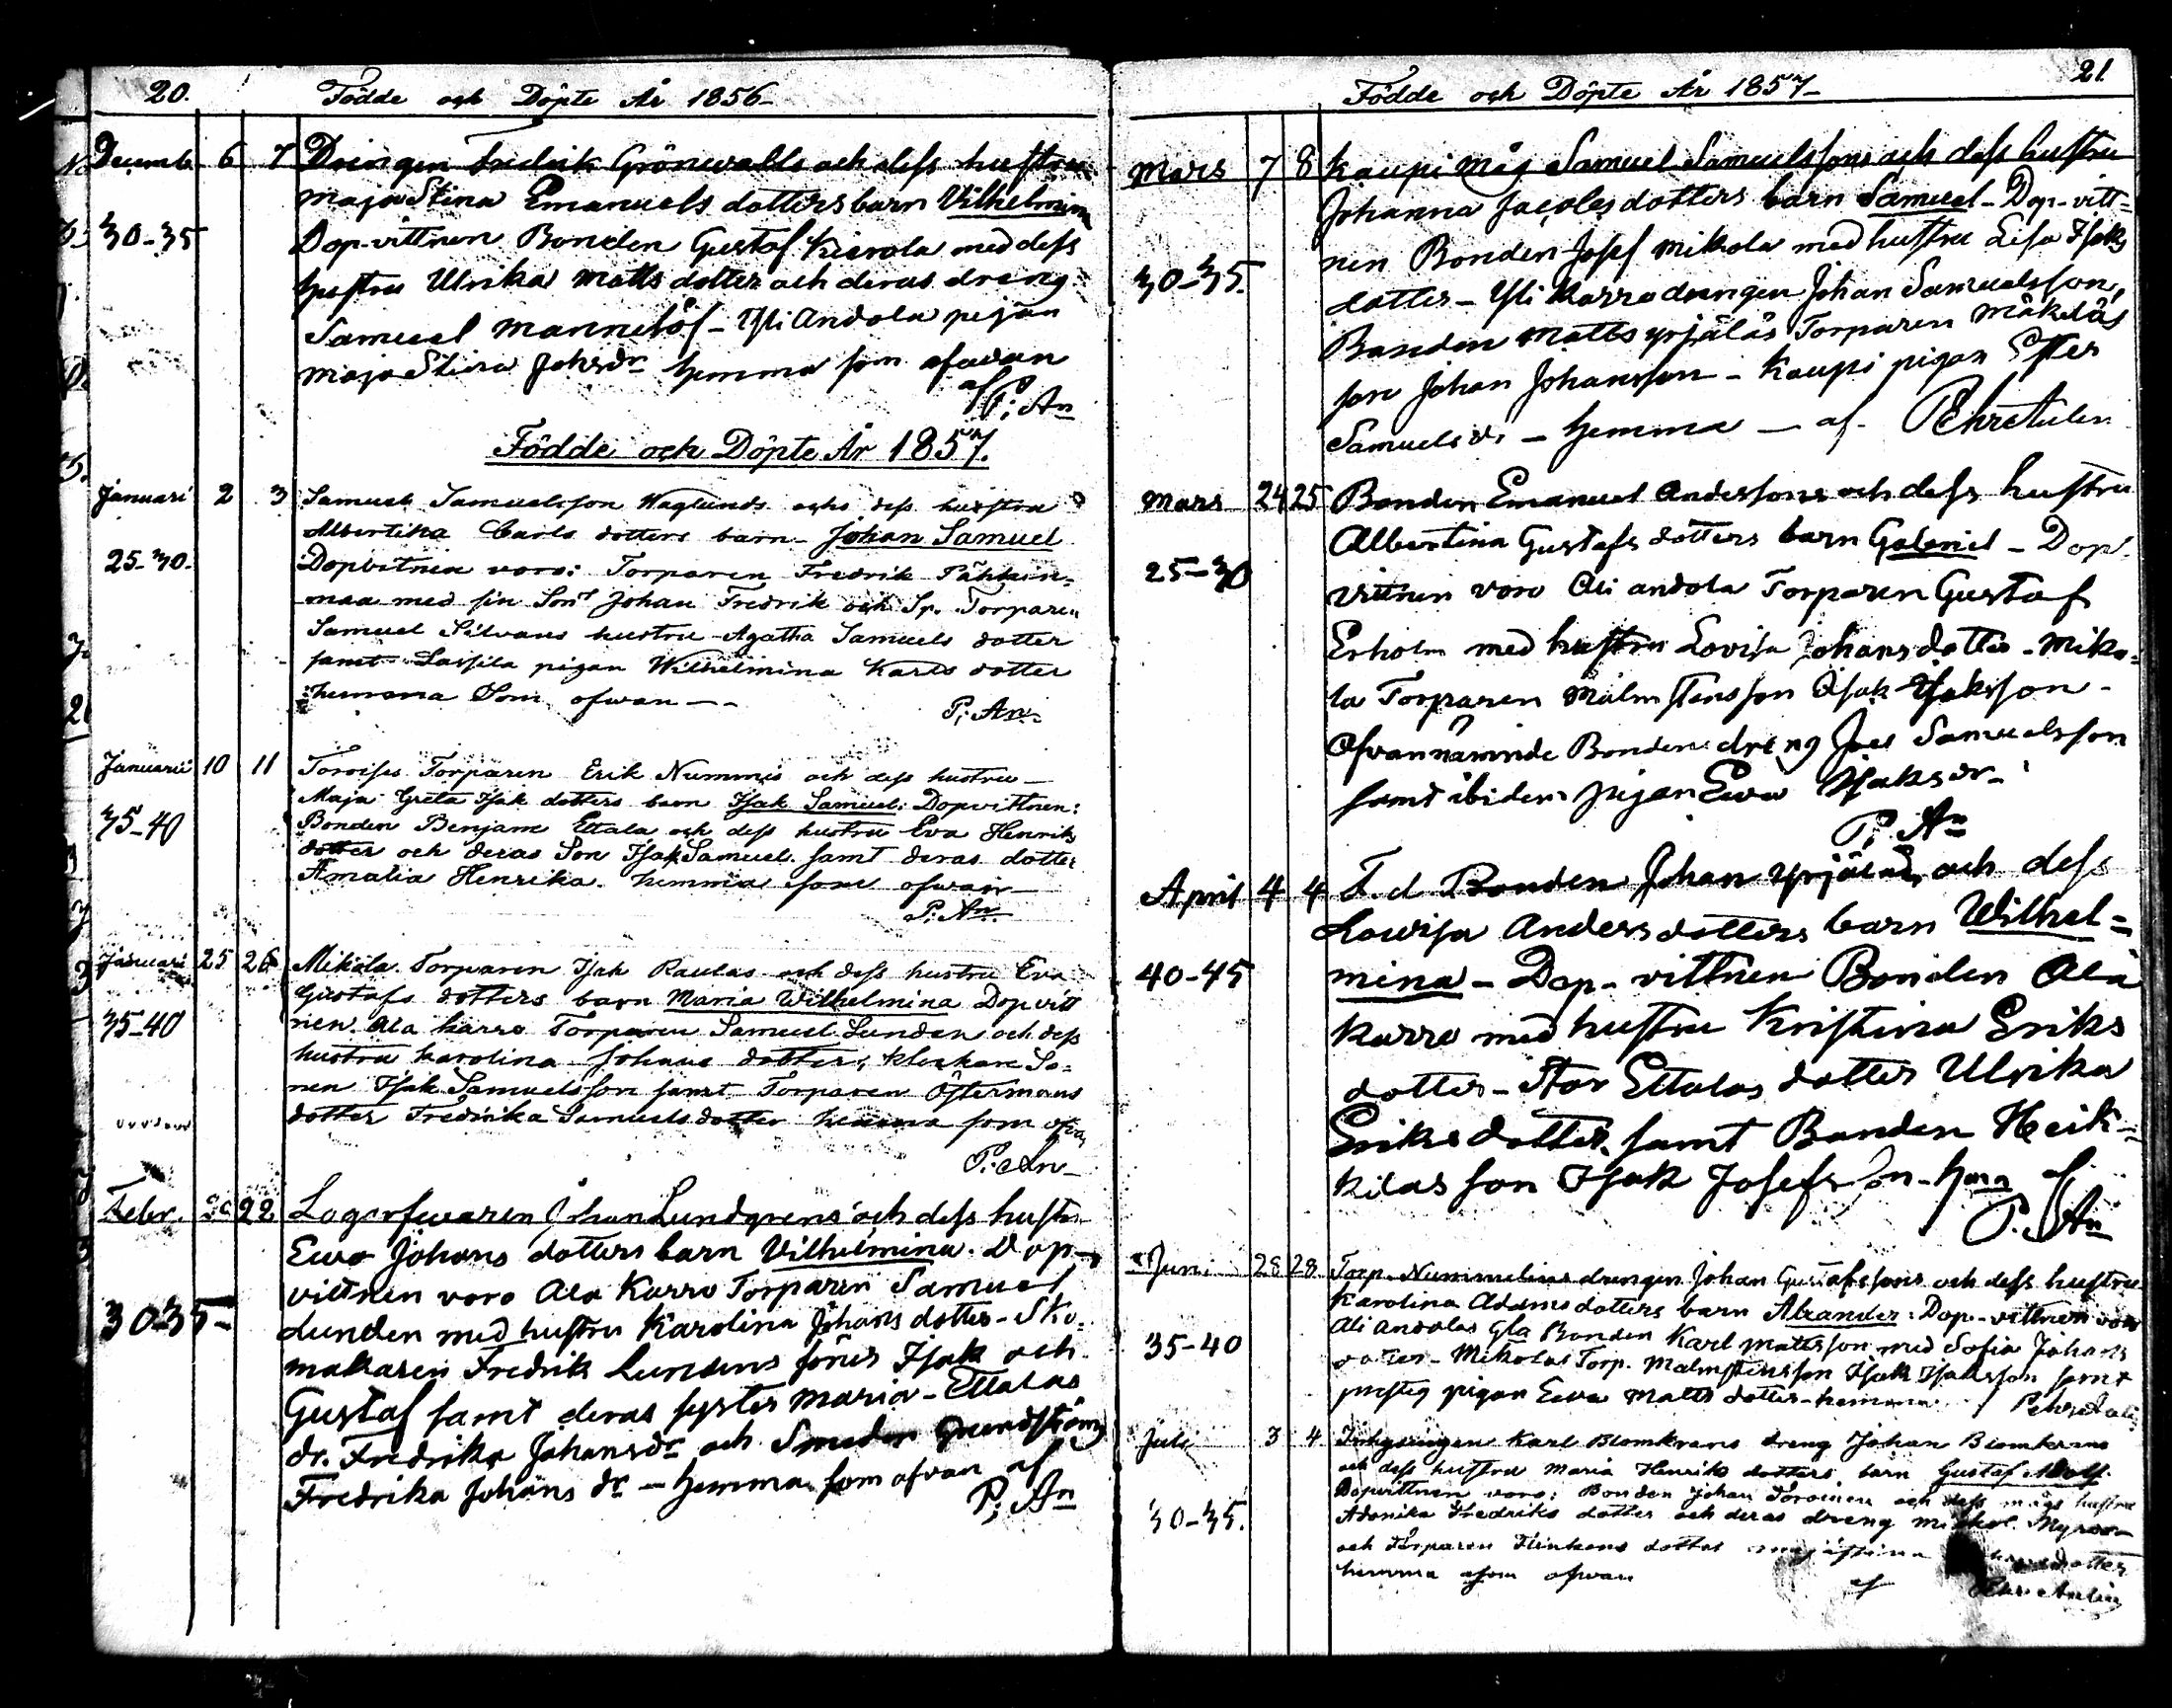 20.
Födde och Döpte År 1856-
Decemb. 6 7 Drängen Fredrik Grönwalls och dess hustru
Maja Stina Emanuels dotters barn Vilhelmina
30-35 Dop-vittnen Bonden Gustaf Kierola med dess
hustru Ulrika Matts dotter och deras dreng
Samuel Mannelöf - Yli Andola pijan
Maja Stina Johsdr hemma som ofwan
af P; An
Födde och Döpte År 1857.
Januari 2 3 Samuel Samuelsson Waglunds och dess hustru
Albertika Carls dotters barn - Johan Samuel
25-30. Dopvitnen voro: Torparen Fredrik Pähkin=
maa med sin Son Johan Fredrik och Sp. Torparen
Samuel Silvans hustru Agatha Samuels dotter
samt Lassila pigan Wilhelmina Karls dotter
hemma Som ofwan --
P; An-
Januari 10 11 Toroises Torparen Erik Nummis och dess hustru
Maja Greta Isak dotters barn Isak Samuel. Dopvittnen:
35-40 Bonden Benjam Ettala och dess hustru Eva Henriks
dotter och deras Son Isak Samuel. samt deras dotter
Amalia Henrika. hemma som ofwan
P. An.
Januari 25 26 Mikola Torparen Isak Paulas och dess hustru Eva
Gustafs dotters barn Maria Wilhelmina Dopvitt
35-40 nen. Ala karro Torparen Samuel Lunden och dess
hustru karolina Johans dotter, klockare So=
nen Isak Samuelsson samt Torparen Östermans
dotter Fredrika Samuelsdotter hemma som ofvan
P: An-
Febr. 22 Lagerfwaren Johan Lundgrens och dess hustru
Ewa Johans dotters barn Vilhelmina. Dop-
vittnen voro Ala Karro Torparen Samuel
30-35- Lunden med hustru Karolina Johans dotter - Sko-
makaren Fredrik Lundens söner Isak och
Gustaf samt deras syster Maria - Ettalas
dr. Fredrika Johansdr och Smeden Grundströms
Fredrika Johans dr - hemma som ofvan af
P; An
21
Födde och Döpte År 1857-
Mars 7 8 Kaupi måg Samuel Samuelssons och dess hustru
Johanna Jacobsdotters barn Samuel - Dop-vitt=
nen Bonden Josef Mikola med hustru Lisa Isaks
30-35. dotter - Yli Karro drengen Johan Samuelsson,
Bonden Matts Yrjäläs Torparen
son Johan Johansson - Kaupi pigan Ester
Samuelsdr - hemma - af - Pehr Aulen
Mars 24 25 Bonden Emanuel Anderssons och dess hustru
Albertina Gustafs dotters barn Gabriel - Dop-
25-30 vittnen voro Ali andola Torparen Gustaf
Erholm med hustru Lovisa Johans dotter - Miko=
la Torparen Malmstensson Isak Isaksson -
Ofvannämnde Bondens dreng Joel Samuelsson
samt ibidem pijan Ewa Isaksdr -
P; An
April 4 4 F. d Bonden Johan Yrjäläs, och dess
Lowisa Anders dotters barn Wilhel=
40-45 mina - Dop-vittnen Bonden Ala
karro med hustru Kristina Eriks
dotter - Stor Ettalas dotter Ulrika
Eriksdotter, samt Bonden Heik-
kilas son Isak Josefsson - hem af
P. An
Juni 28 28 Torp. Nummelins drengen Johan Gustafssons och dess hustru
Karolina Adams dotters barn Alexander: Dop-vittnen voro
Ali Andolas Gla Bonden Karl Mattsson med Sofia Johans
35-40 dotter - Mikolas Torp. Malmstensson Isak Isaksson samt
pigan Ewa Matts dotter - hemma
Juli 3 4 Karl Blomkrans dreng Johan Blomkrans
och dess hustru Maria Henriks dotters barn Gustaf Adolf.
Dopvittnen voro: Bonden Johan Toroinen och dess mågs hustru
30-35. Adonika Fredriks dotter och deras dreng
och Torparen Flinkens dotter
hemma som ofvan af